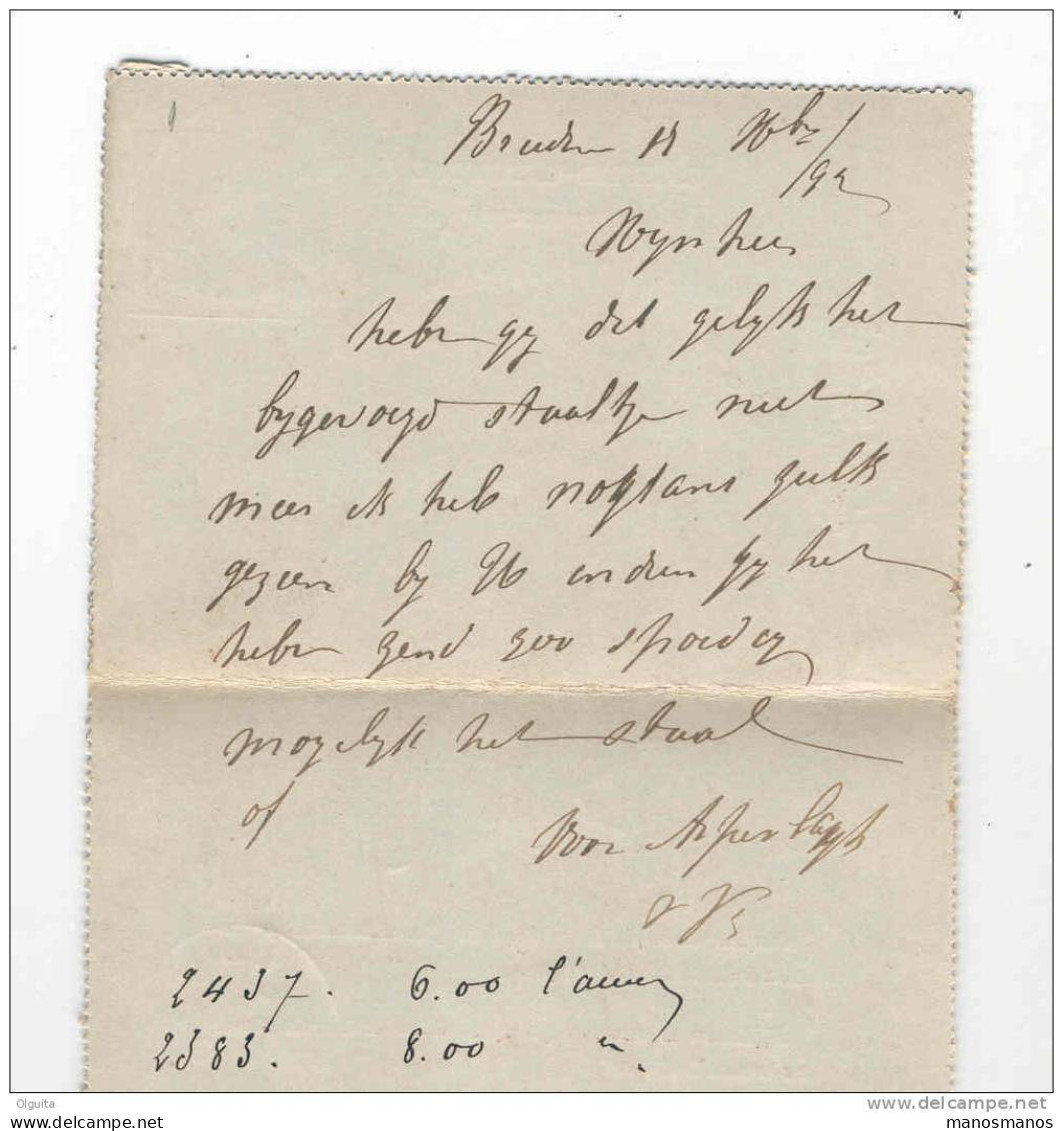 1
Breedene 18 9bre /92
Mynheer
hebn gy dit gelyk het
bygevoegd staaltje niet
meer ik heb nogtans zulk
gezien by U indien gy het
hebn zend zoo spoedig
mogelyk het staal
of
Voor
2437. 6.00 l'aune
2383. 8.00 " .
Olguita
delcampe.net
www.delcampe.net
manosmanos